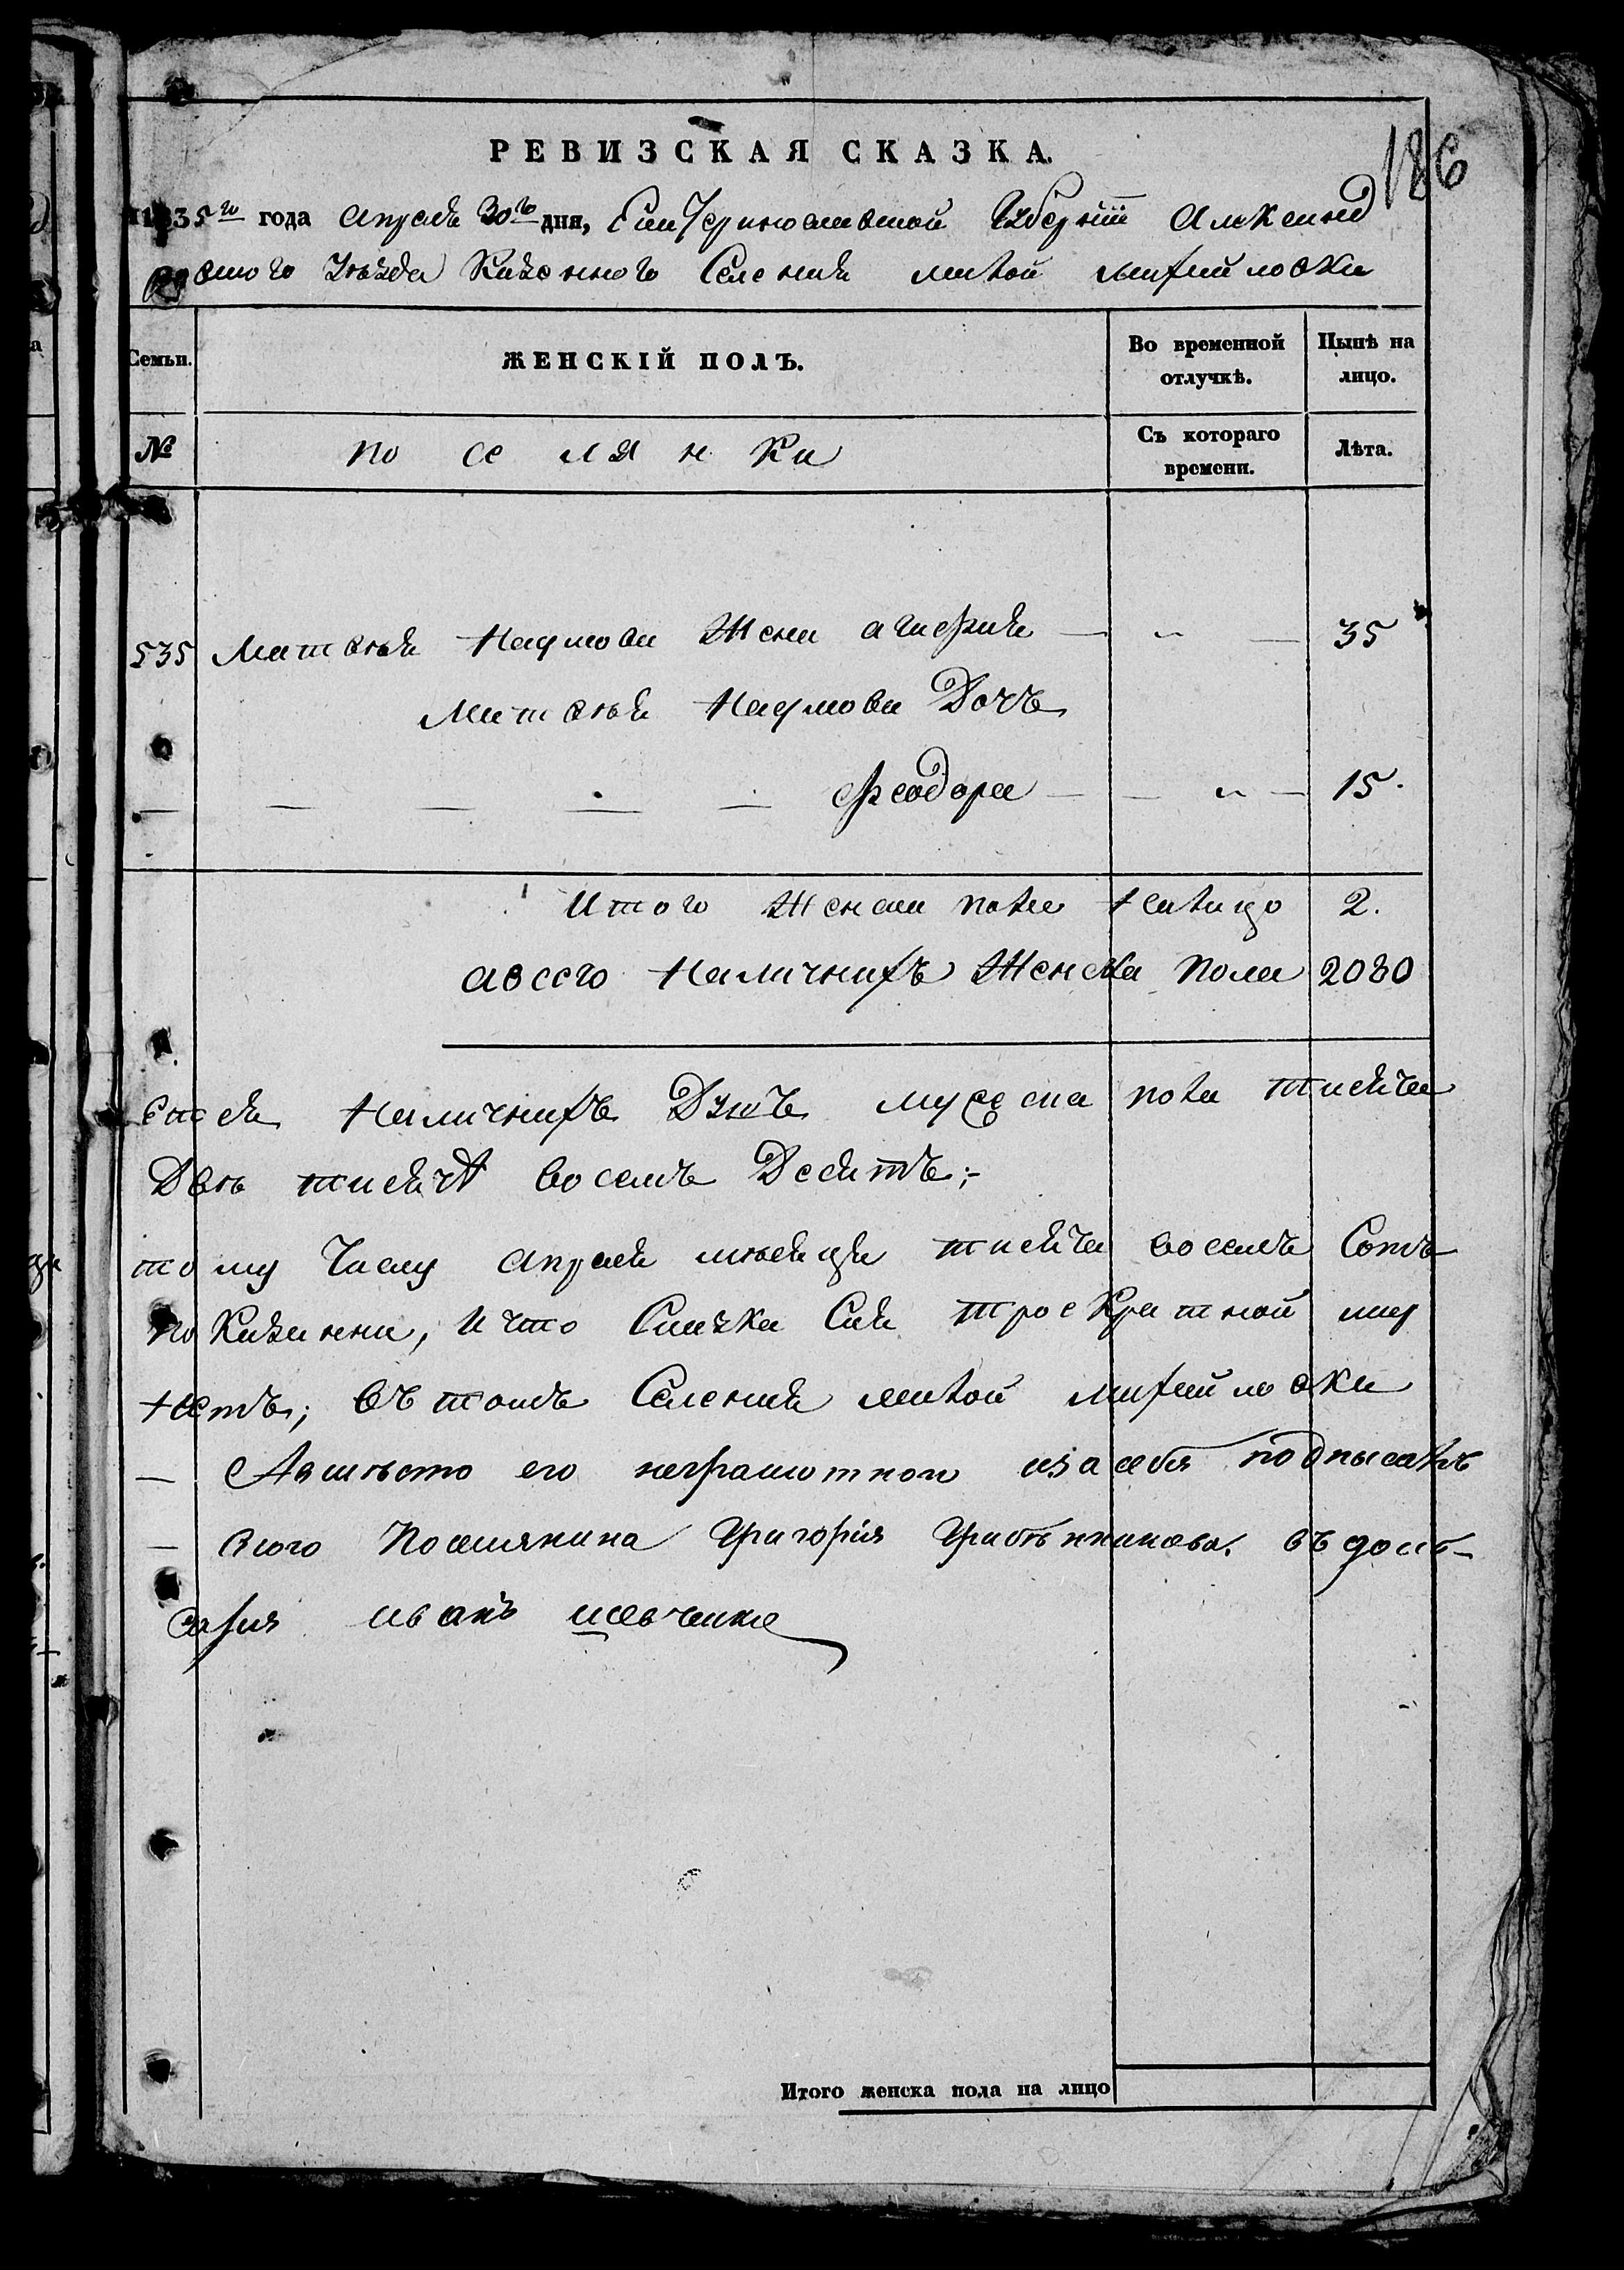 РЕВИЗСКАЯ СКАЗКА.
186
1835го года апреля 30го дня, Екатеринославской Губернiи Александ
ровского Уѣзда Казенного Селения малой михайловки
Семьи.
ЖЕНСКІЙ ПОЛЪ.
Во временной отлучкѣ.
Нынѣ на лицо.
№
поселянки
Съ котораго времени.
Лѣта.
535 Матвѣя Наумова Жена агафия — " — 35
Матвѣя Наумова Дочь
Феодора — " — 15.
Итого Женска пола налицо 2.
авсего Наличнихъ Женска Пола 2080
Наличнихъ Душъ мужеска пола тисяча
Двѣ тисячА восемъ Десятъ;-
тому Числу апреля мѣсяця тисяча восемъ Сотъ
показанни, И что Сказка Сия троекратной
нетъ; въ томъ Селения малой михайловки
— Авместо его неграмотного изасебя подписалъ
— Поселянина Григория
иванъ шевченко
Итого женска пола на лицо